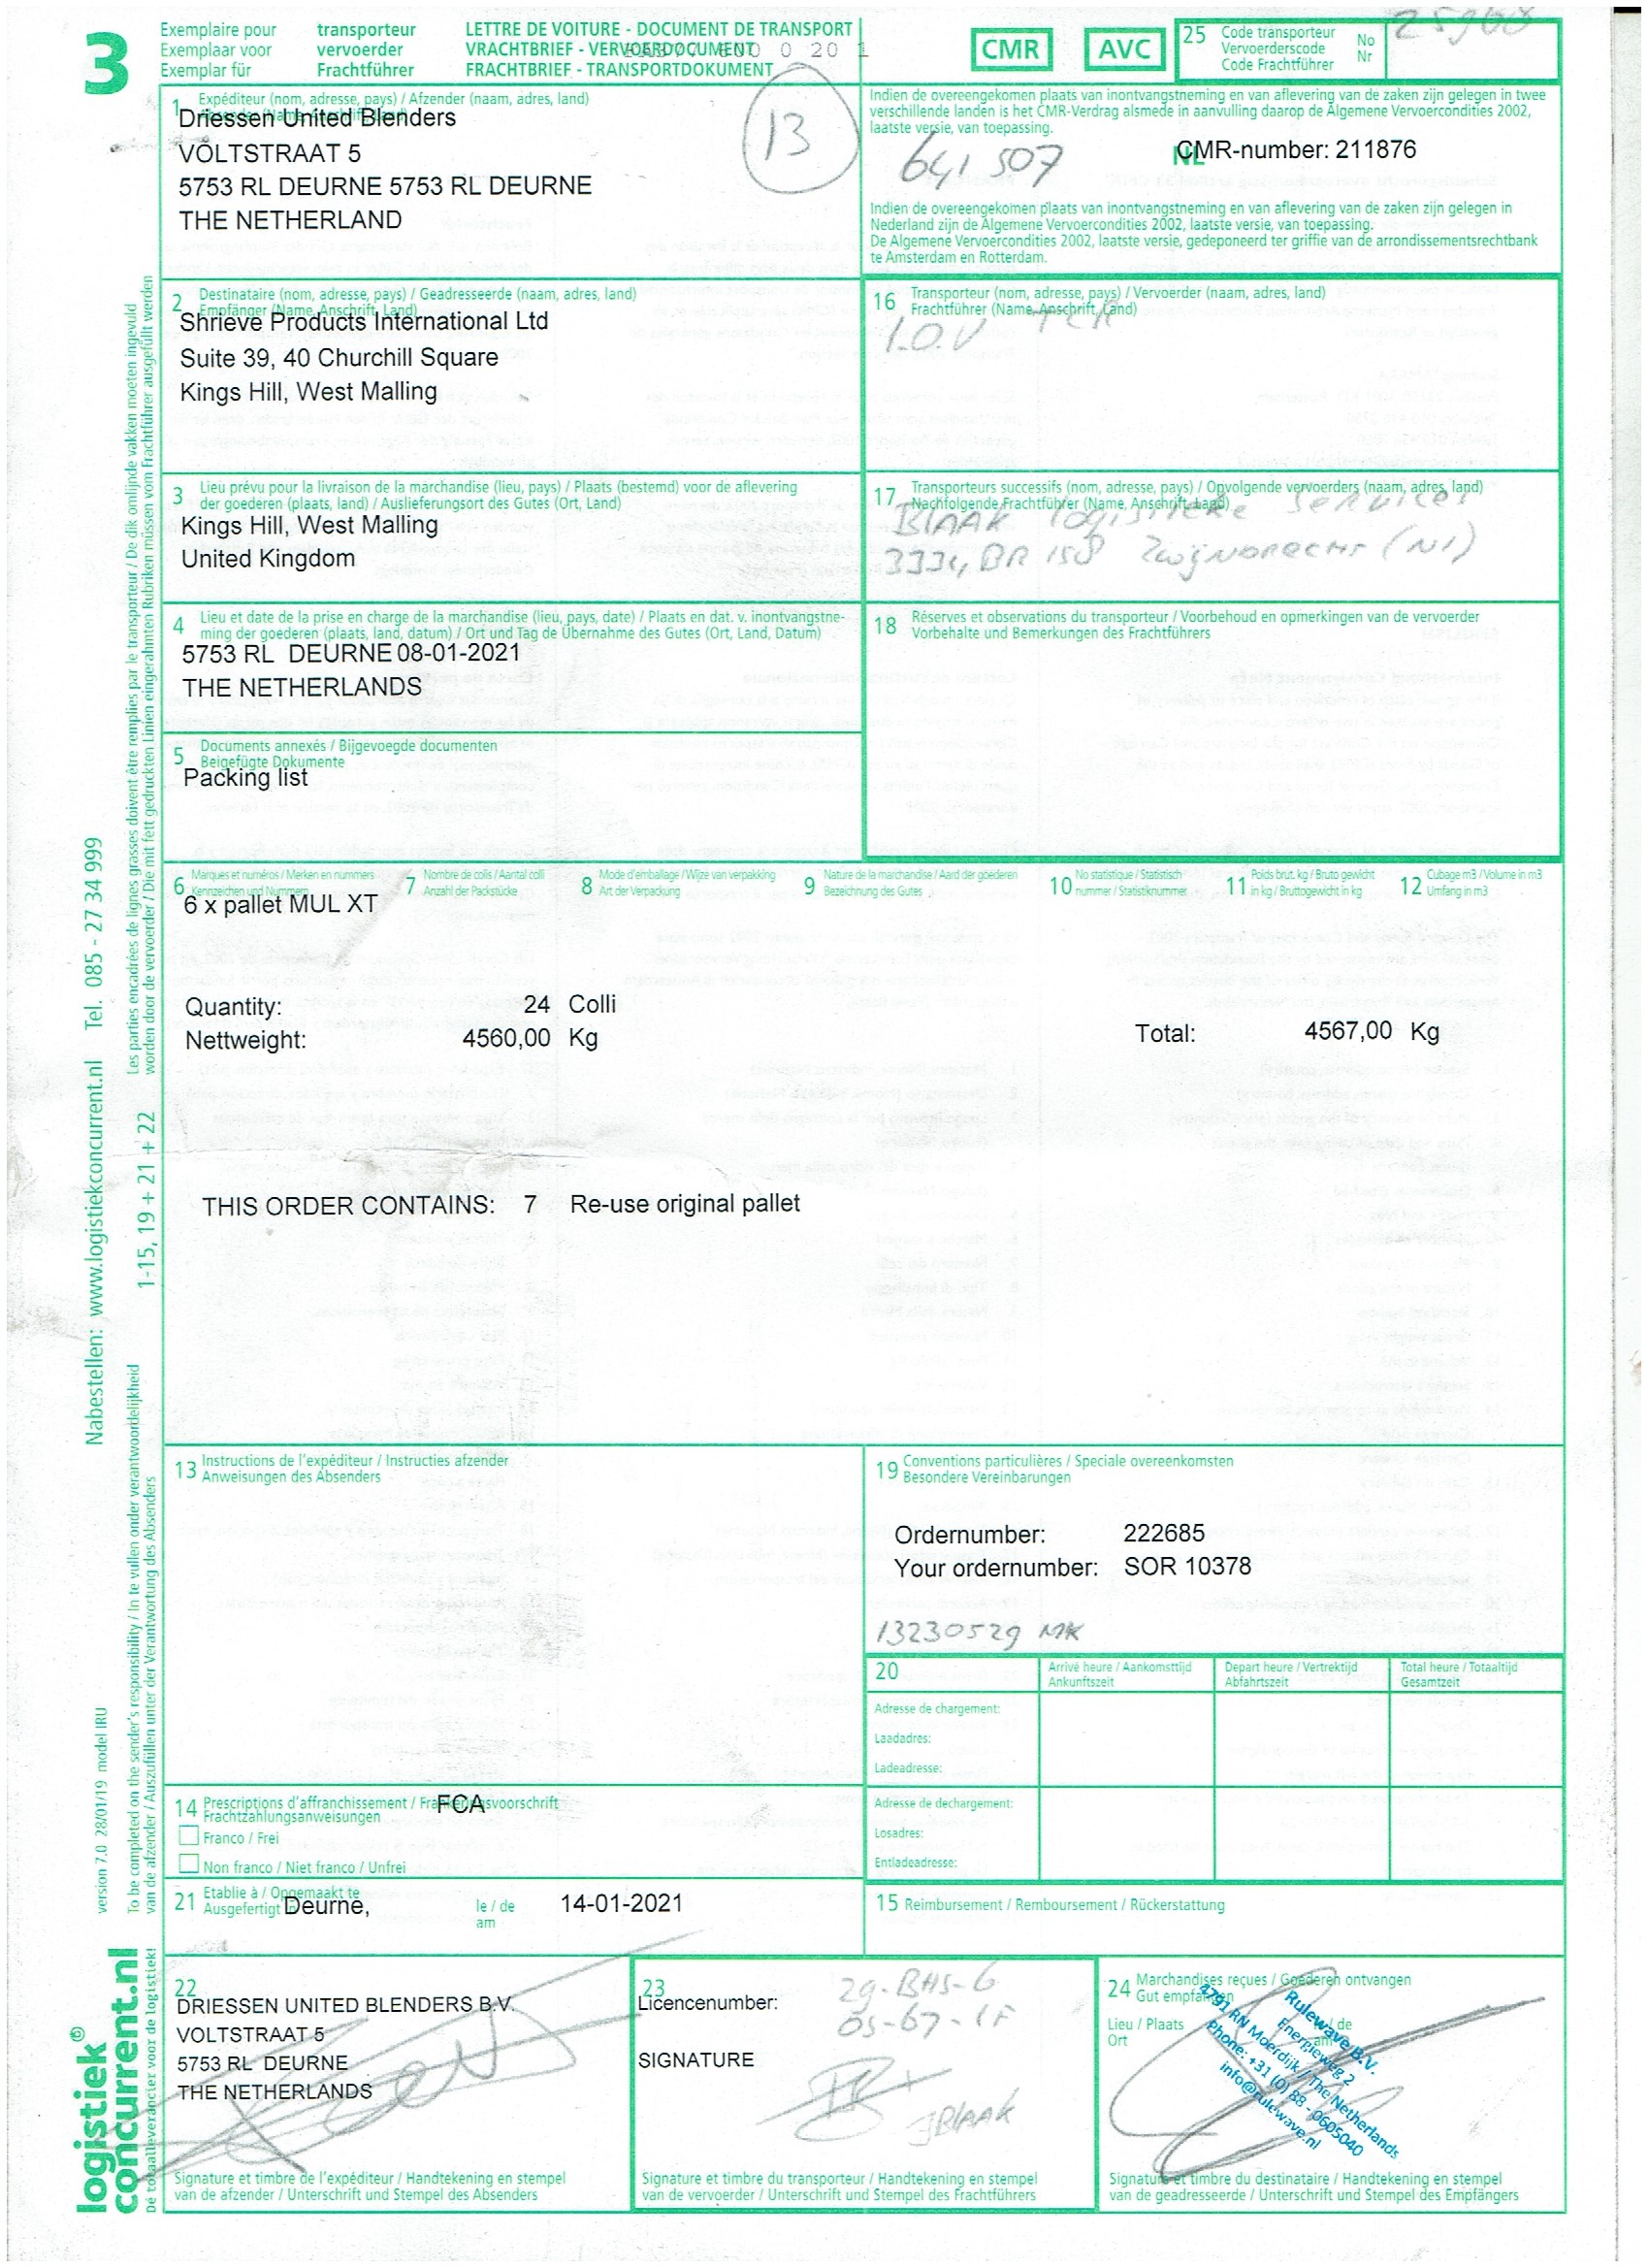 3
Exemplaire pour transporteur
Exemplaar voor vervoerder
Exemplar für Frachtführer
LETTRE DE VOITURE - DOCUMENT DE TRANSPORT
VRACHTBRIEF - VERVOERDOCUMENT
FRACHTBRIEF - TRANSPORTDOKUMENT
CMR
AVC
25 Code transporteur
Vervoerderscode
Code Frachtführer
No
Nr
1 Expéditeur (nom, adresse, pays) / Afzender (naam, adres, land)
Driessen United Blenders
VOLTSTRAAT 5
5753 RL DEURNE 5753 RL DEURNE
THE NETHERLAND
13
Indien de overeengekomen plaats van inontvangstneming en van aflevering van de zaken zijn gelegen in twee
verschillende landen is het CMR-Verdrag alsmede in aanvulling daarop de Algemene Vervoercondities 2002,
laatste versie, van toepassing.
641507
NL
CMR-number: 211876
Indien de overeengekomen plaats van inontvangstneming en van aflevering van de zaken zijn gelegen in
Nederland zijn de Algemene Vervoercondities 2002, laatste versie, van toepassing.
De Algemene Vervoercondities 2002, laatste versie, gedeponeerd ter griffie van de arrondissementsrechtbank
te Amsterdam en Rotterdam.
2 Destinataire (nom, adresse, pays) / Geadresseerde (naam, adres, land)
Empfänger (Name, Anschrift, Land)
Shrieve Products International Ltd
Suite 39, 40 Churchill Square
Kings Hill, West Malling
16 Transporteur (nom, adresse, pays) / Vervoerder (naam, adres, land)
Frachtführer (Name, Anschrift, Land)
I.O.V
3 Lieu prévu pour la livraison de la marchandise (lieu, pays) / Plaats (bestemd) voor de aflevering
der goederen (plaats, land) / Auslieferungsort des Gutes (Ort, Land)
Kings Hill, West Malling
United Kingdom
17 Transporteurs successifs (nom, adresse, pays) / Opvolgende vervoerders (naam, adres, land)
Nachfolgende Frachtführer (Name, Anschrift, Land)
BLAAK logistieke services
BR 158 Zwijndrecht (Nl)
4 Lieu et date de la prise en charge de la marchandise (lieu, pays, date) / Plaats en dat. v. inontvangstne-
ming der goederen (plaats, land, datum) / Ort und Tag de Übernahme des Gutes (Ort, Land, Datum)
5753 RL DEURNE 08-01-2021
THE NETHERLANDS
18 Réserves et observations du transporteur / Voorbehoud en opmerkingen van de vervoerder
Vorbehalte und Bemerkungen des Frachtführers
5 Documents annexés / Bijgevoegde documenten
Beigefügte Dokumente
Packing list
6 Marques et numéros / Merken en nummers
Kennzeichen und Nummern
7 Nombre de colis / Aantal colli
Anzahl der Packstücke
8 Mode d'emballage / Wijze van verpakking
Art der Verpackung
9 Nature de la marchandise / Aard der goederen
Bezeichnung des Gutes
10 No statistique / Statistisch
nummer / Statistiknummer
11 Poids brut. kg / Bruto gewicht
in kg / Bruttogewicht in kg
12 Cubage m3 / Volume in m3
Umfang in m3
6 x pallet MUL XT
Quantity: 24 Colli
Nettweight: 4560,00 Kg
Total: 4567,00 Kg
THIS ORDER CONTAINS: 7 Re-use original pallet
13 Instructions de l'expéditeur / Instructies afzender
Anweisungen des Absenders
19 Conventions particulières / Speciale overeenkomsten
Besondere Vereinbarungen
Ordernumber: 222685
Your ordernumber: SOR 10378
13230529 MK
20
Arrivé heure / Aankomsttijd
Ankunftszeit
Depart heure / Vertrektijd
Abfahrtszeit
Total heure / Totaaltijd
Gesamtzeit
Adresse de chargement:
Laadadres:
Ladeadresse:
Adresse de dechargement:
Losadres:
Entladeadresse:
14 Prescriptions d'affranchissement / Frankeringsvoorschrift
Frachtzahlungsanweisungen
FCA
Franco / Frei
Non franco / Niet franco / Unfrei
21 Etablie à / Opgemaakt te
Ausgefertigt
Deurne,
le / de
am
14-01-2021
15 Reimbursement / Remboursement / Rückerstattung
22
DRIESSEN UNITED BLENDERS B.V.
VOLTSTRAAT 5
5753 RL DEURNE
THE NETHERLANDS
Signature et timbre de l'expéditeur / Handtekening en stempel
van de afzender / Unterschrift und Stempel des Absenders
23
Licencenumber:
29-BHS-6
SIGNATURE
JBLAAK
Signature et timbre du transporteur / Handtekening en stempel
van de vervoerder / Unterschrift und Stempel des Frachtführers
24 Marchandises reçues / Goederen ontvangen
Gut empfangen
Lieu / Plaats
Ort
/ de
am
Rulewave B.V.
Energieweg 2
4791 RN Moerdijk / The Netherlands
Phone: +31 (0) 88 - 0605040
info@rulewave.nl
Signature et timbre du destinataire / Handtekening en stempel
van de geadresseerde / Unterschrift und Stempel des Empfängers
Les parties encadrées de lignes grasses doivent être remplies par le transporteur / De dik omlijnde vakken moeten ingevuld
worden door de vervoerder / Die mit fett gedruckten Linien eingerahmten Rubriken müssen vom Frachtführer ausgefüllt werden
Nabestellen: www.logistiekconcurrent.nl Tel. 085 - 27 34 999
1-15, 19 + 21 + 22
To be completed on the sender's responsibility / In te vullen onder verantwoordelijkheid
van de afzender / Auszufüllen unter der Verantwortung des Absenders
version 7.0 28/01/19 model IRU
logistiek©
concurrent.nl
Dé totaalleverancier voor de logistiek!